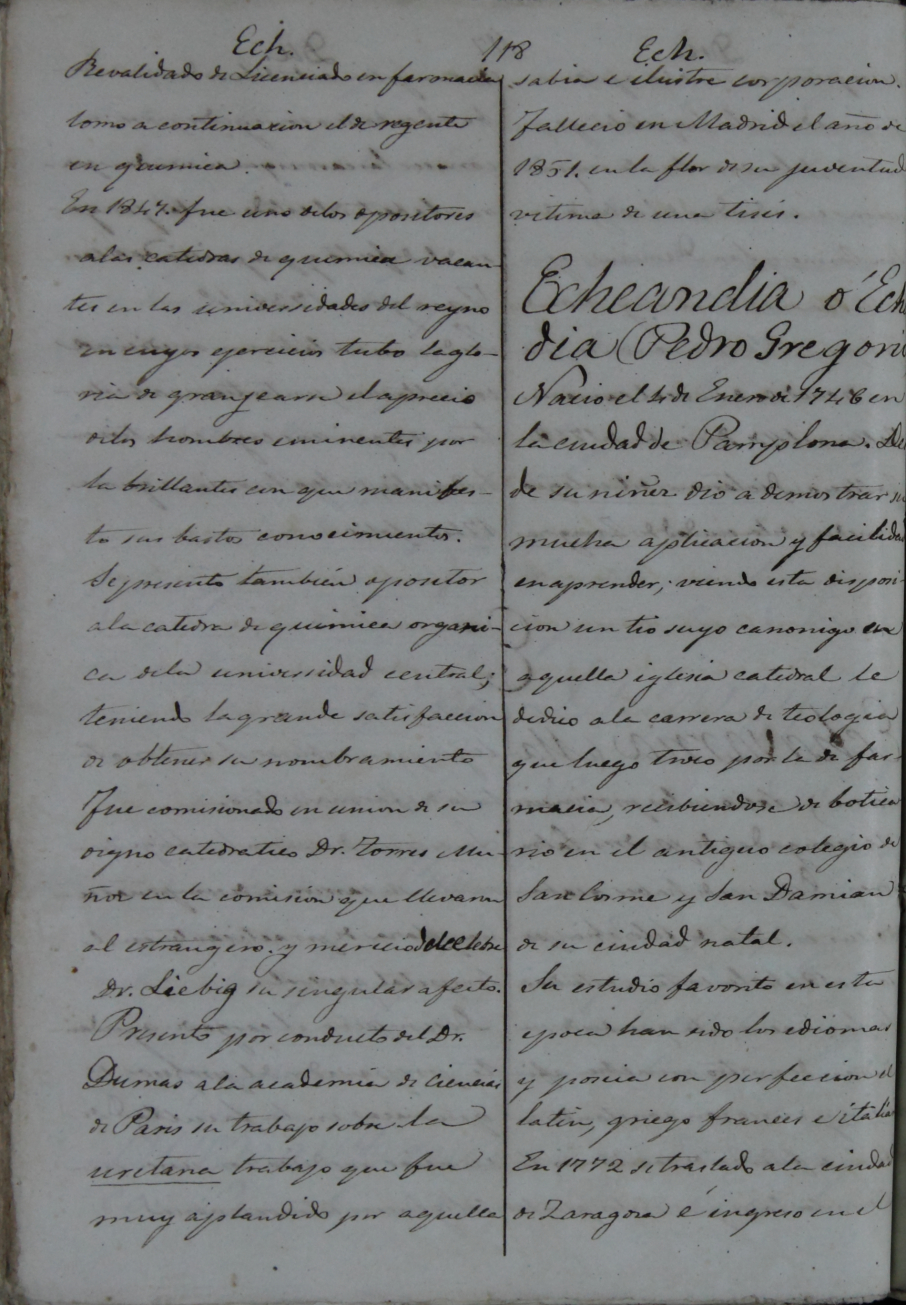 Ech. 118 Ech.
Revalidado de Licenciado en farmacia
tomo a continuacion el de regente
en quimica.
En 1847. fue uno delos opositores
alas catedras de quimica vacan-
tes en las universidades del reyno
en cuyos ejercicios tubo la glo-
ria de grangearse el aprecio
delos hombres eminentes por
la brillantes con que manifes-
to sus bastos conocimientos.
Se presento también opositor
ala catedra de quimica organi-
ca dela universidad central;
teniendo la grande satisfaccion
de obtener su nombramiento
Fue comisionado en union de su
digno catedratico Dr. Torres Mu-
ñoz en la comision que llevaron
al estrangero. y merecio del celebre
Dr. Liebig su singular afecto.
Presento por conducto del Dr.
Dumas ala academia de ciencias
de Paris su trabajo sobre la
uretana trabajo que fue
muy aplaudido por aquella
sabia e ilustre corporacion.
Fallecio en Madrid el año de
1851. en la flor de su juventud
vitima de una tisis.
Echeandia ó Ech
dia (Pedro Gregorio
Nacio el 4 de Enero de 1746 en
la ciudad de Pamplona. Des
de su niñez dio a demostrar su
mucha aplicacion y facilidad
en aprender; viendo esta disposi-
cion un tio suyo canonigo en
aquella iglesia catedral le
dedico ala carrera de teologia
que luego troco por la de far-
macia, recibiendose de botica
rio en el antiguo colegio de
San Cosme y San Damian
de su ciudad natal.
Su estudio favorito en esta
epoca han sido los ediomas
y poseia con perfeccion el
latin, griego frances e italia
En 1772 se traslado ala ciudad
de Zaragoza é ingreso en el